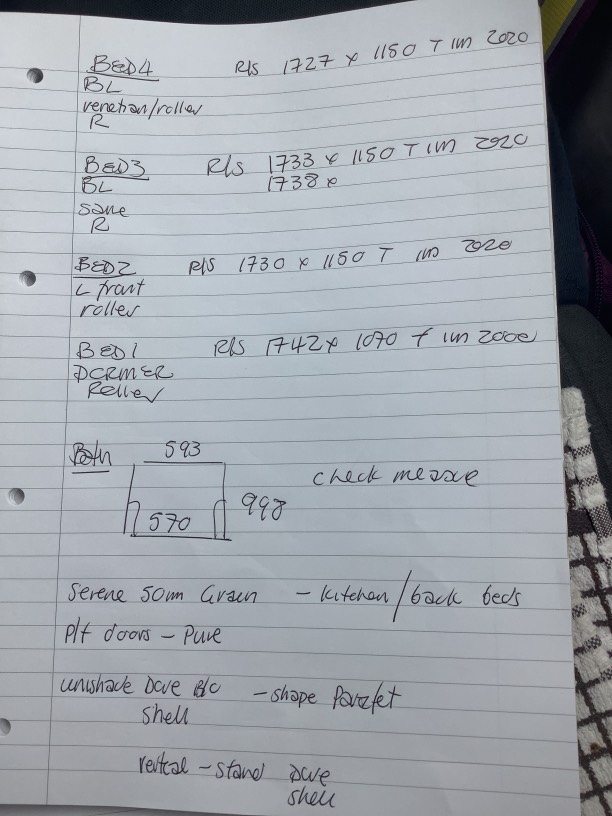 BED4 R/S 1727 x 1150 T 1m 2020
BL
venetian/roller
R
BED3 R/S 1733 x 1150 T 1m 2020
BL 1738 x
same
R
BED2 R/S 1730 x 1150 T 1m 2020
L front
roller
BED1 R/S 1742 x 1070 T 1m 2000
DORMER
Roller
Bath 593
check measure
998
570
Serene 50mm Grain - kitchen/back beds
P/f doors - Pure
unishade Dove B/O - shape Parafet
shell
vertical - stand Dove
shell